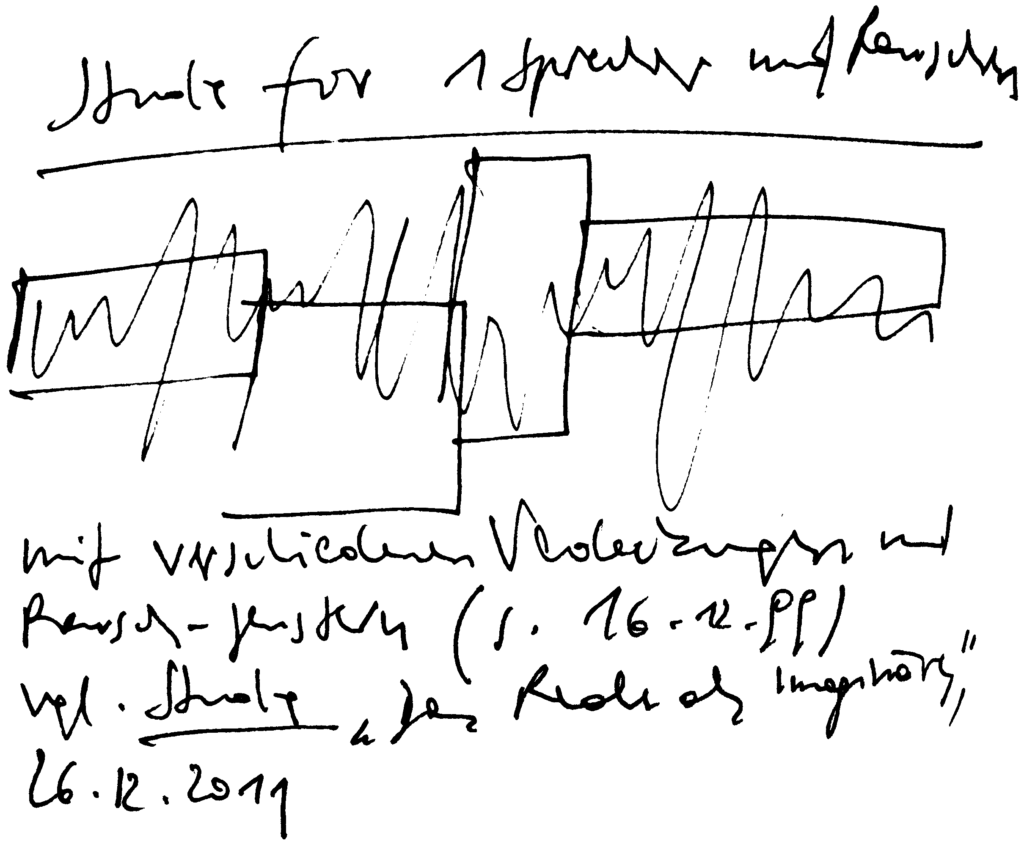 Studie für 1 Sprecher und Rauschen
mit verschiedenen Verdeckungen und
Rausch-fenstern (s. 16.12.99)
vgl. Studie „ Rede des Imaginären“,
26.12.2011